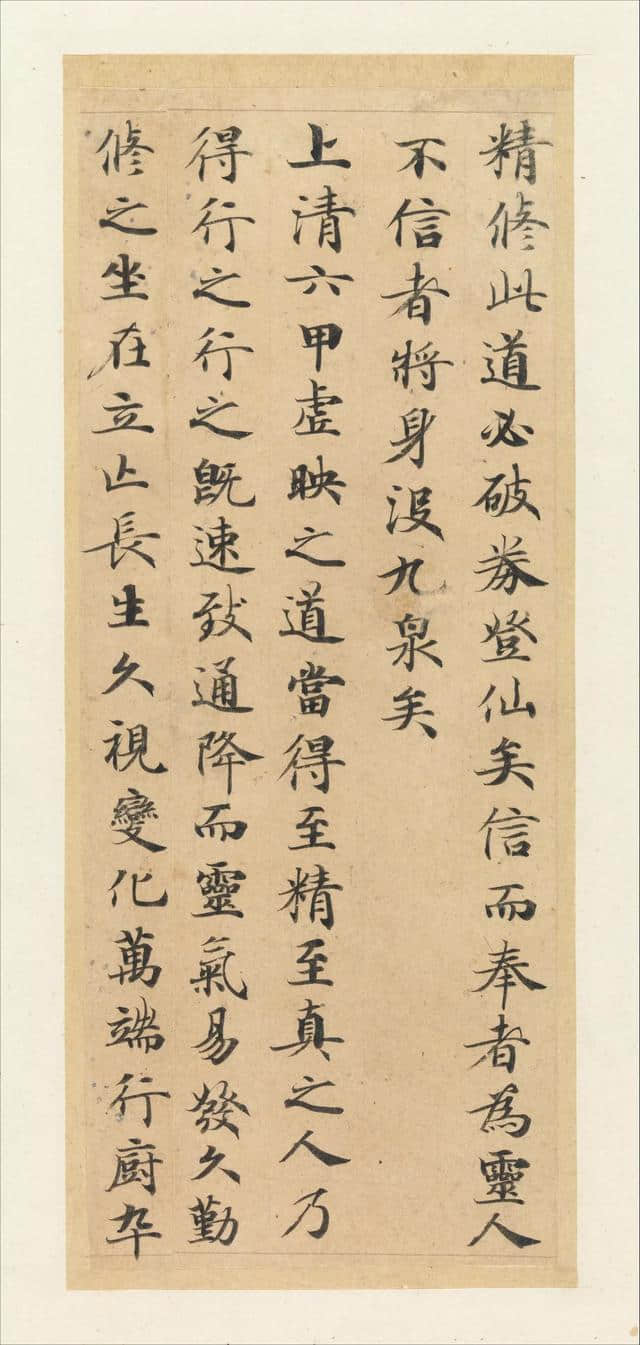 精脩此道必破券登仙矣信而奉者為靈人
不信者將身没九泉矣
上清六甲虛映之道當得至精至真之人乃
得行之行之既速致通降而靈氣易發久勤
脩之坐在立亾長生久視變化萬端行廚卒